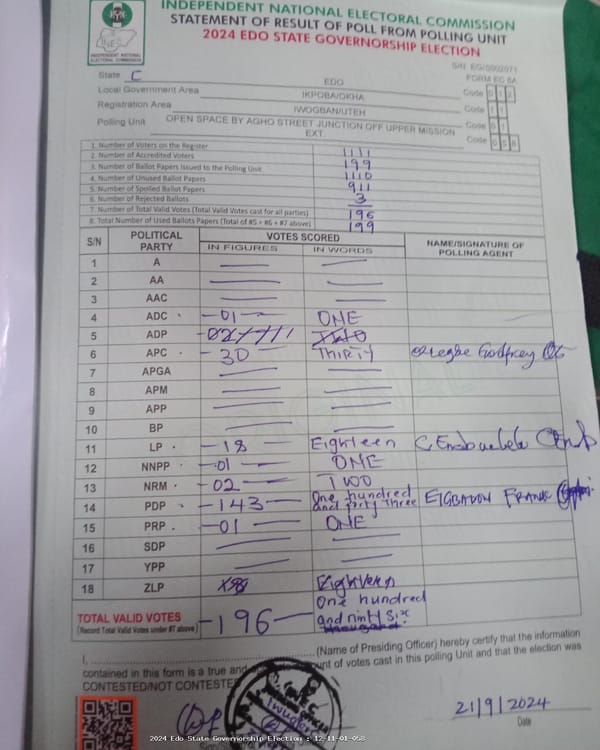 INDEPENDENT NATIONAL ELECTORAL COMMISSION
STATEMENT OF RESULT OF POLL FROM POLLING UNIT
2024 EDO STATE GOVERNORSHIP ELECTION
INEC
INDEPENDENT NATIONAL ELECTORAL COMMISSION
S/N: EG/0002071
FORM EC 8A
State C EDO
Local Government Area IKPOBA/OKHA Code 0 1 2
Registration Area IWOGBAN/UTEH Code 1 1
Polling Unit OPEN SPACE BY AGHO STREET JUNCTION OFF UPPER MISSION EXT. Code 0 5 8
1. Number of Voters on the Register 1111
2. Number of Accredited Voters 199
3. Number of Ballot Papers Issued to the Polling Unit 1110
4. Number of Unused Ballot Papers 911
5. Number of Spoiled Ballot Papers 3
6. Number of Rejected Ballots —
7. Number of Total Valid Votes (Total Valid Votes cast for all parties) 196
8. Total Number of Used Ballots Papers (Total of #5 + #6 + #7 above) 199
S/N POLITICAL PARTY VOTES SCORED NAME/SIGNATURE OF POLLING AGENT
IN FIGURES IN WORDS
1 A — —
2 AA — —
3 AAC — —
4 ADC -01- ONE
5 ADP TWO
6 APC -30- THIRTY Godfrey
7 APGA — —
8 APM — —
9 APP — —
10 BP — —
11 LP -18- Eighteen
12 NNPP -01- ONE
13 NRM -02- TWO
14 PDP -143- One hundred and forty three EIGBADON FRANK
15 PRP -01- ONE
16 SDP — —
17 YPP — —
18 ZLP Eighteen
TOTAL VALID VOTES -196- One hundred and ninty six
(Record Total Valid Votes under #7 above)
I, (Name of Presiding Officer) hereby certify that the information
contained in this form is a true and unt of votes cast in this polling Unit and that the election was
CONTESTED/NOT CONTESTE
21/9/2024
Date
2024 Edo State Governorship Election : 12-11-01-058